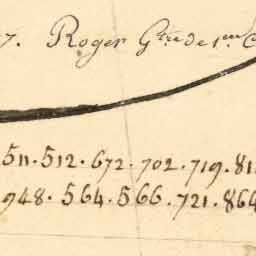 7. Roger G.re de 1.ere C
511. 512. 672. 702. 719. 81
948. 564. 566. 721. 864